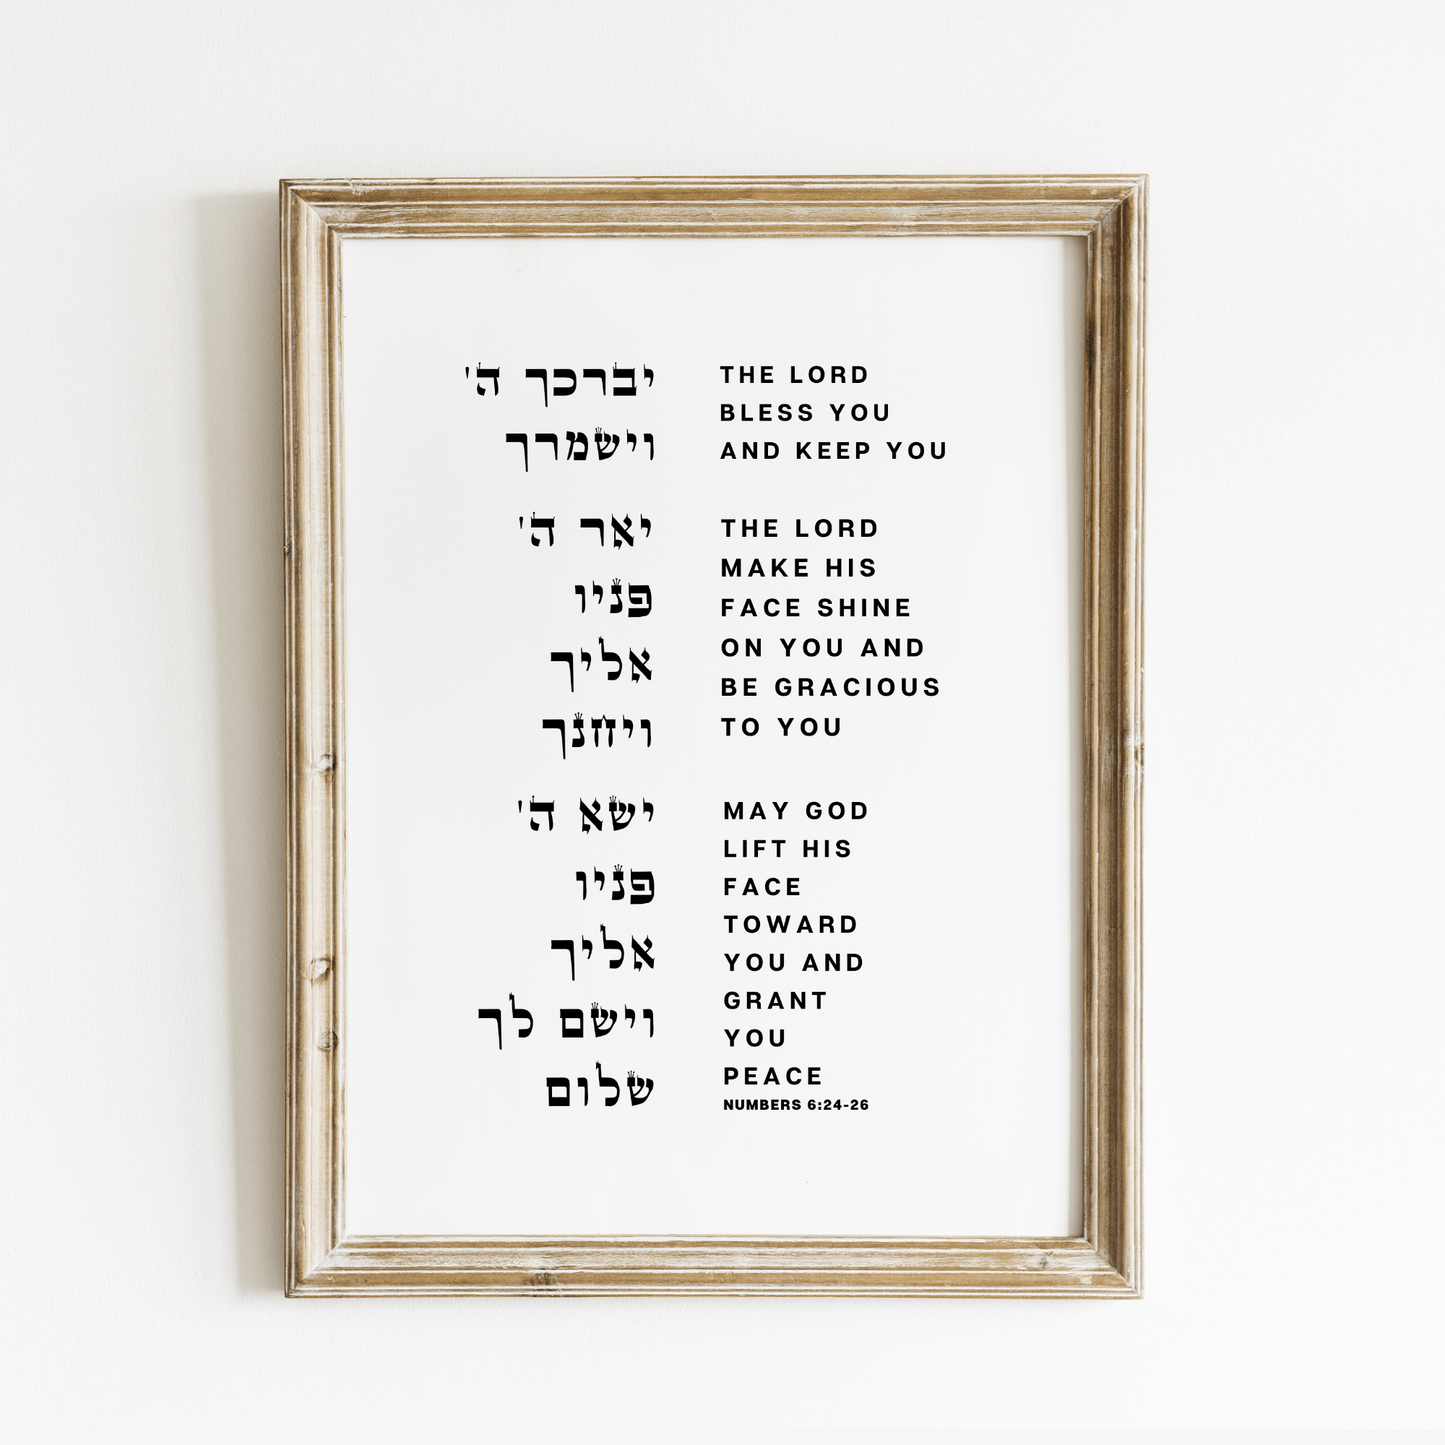 יברכך ה'
וישמרך
יאר ה'
פניו
אליך
ויחנך
ישא ה'
פניו
אליך
וישם לך
שלום
THE LORD
BLESS YOU
AND KEEP YOU
THE LORD
MAKE HIS
FACE SHINE
ON YOU AND
BE GRACIOUS
TO YOU
MAY GOD
LIFT HIS
FACE
TOWARD
YOU AND
GRANT
YOU
PEACE
NUMBERS 6:24-26